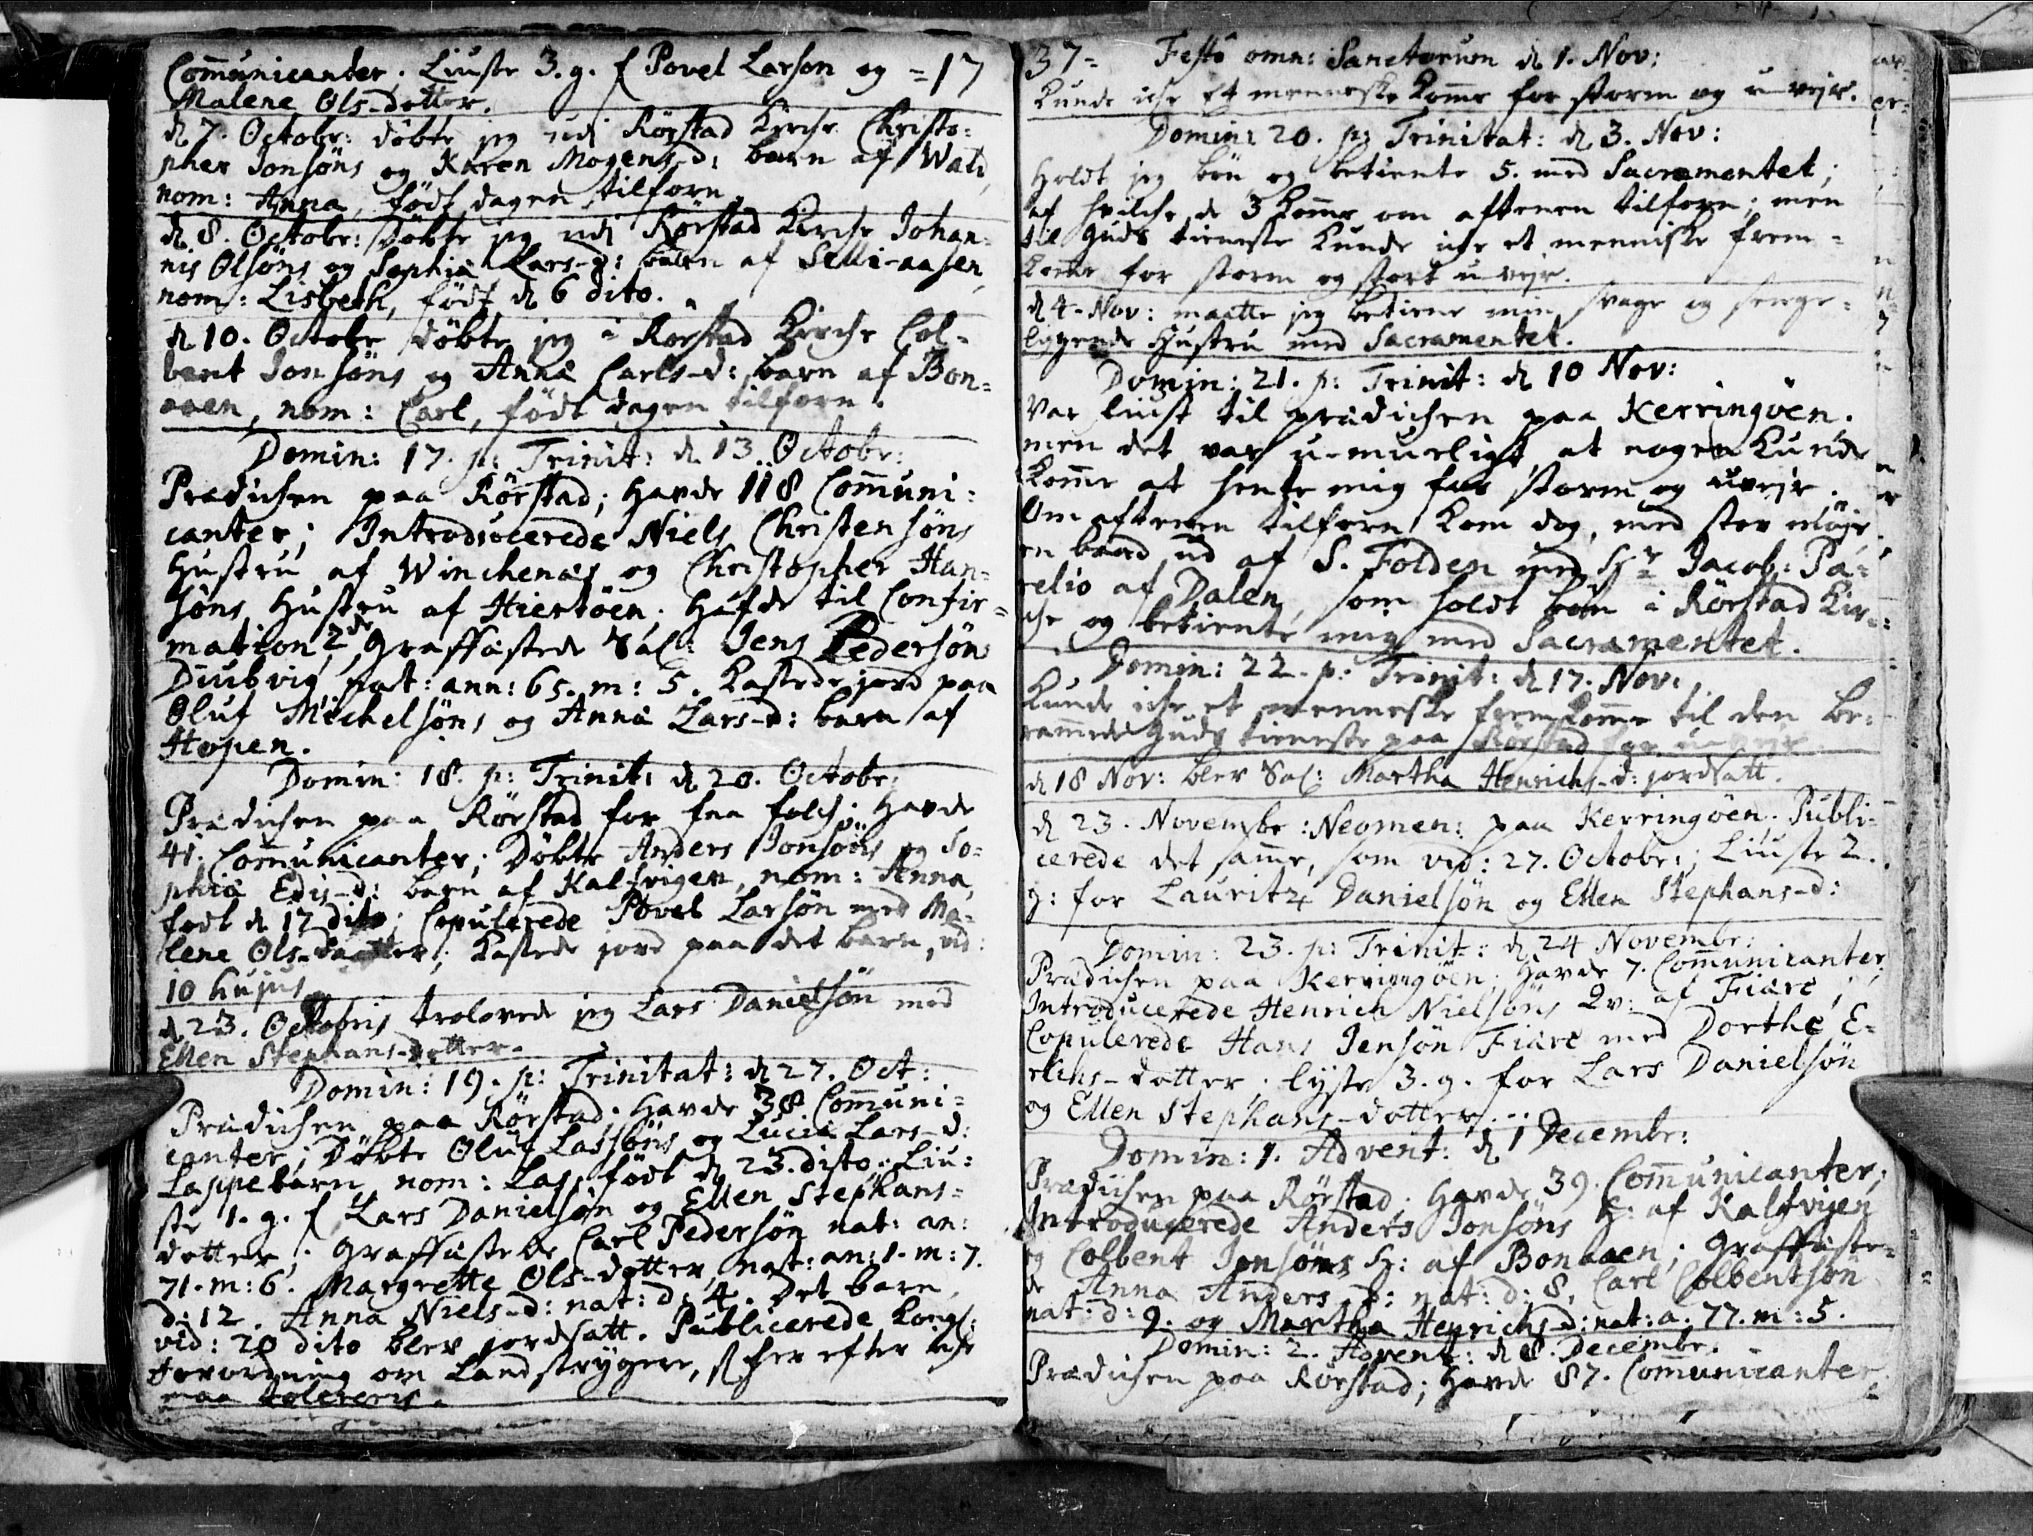 Communicanter. Liuste 3. g. f Povel Larsøn og =17
Malene Ols-dotter.
d 7. Octobr: døbte jeg udj Rørstad Kirche Christo-
pher Jonsøns og Karen Mogens-d: barn af Wald,
nom: Anna, født dagen tilforn.
d 8. Octobr: døbte jeg udj Rørstad Kirche Johan-
nis Olsøns og Sophia Lars-d: barn af Selli-aasen,
nom: Lisbeth, født d 6 dito.
d 10. Octobr døbte jeg i Rørstad Kirche Col-
bent Jonsøns og Anna Carls-d: barn af Bon-
aaen, nom: Carl, født dagen tilforn.
Domin: 17. p: Trinit: d 13. Octobr:
Prædichen paa Rørstad; Havde 118 Communi-
canter; Introducerede Niels Christensøns
Hustru af Winchenæs og Christopher Han-
søns Hustru af Hiertøen. Hafde til Confir-
mation 2de, Graffæstede Sal: Jens Pedersøn
Diubvig nat: ann: 65. m: 5. Kastede jord paa
Oluf Michelsøns og Anna Lars-d: barn af
Hopen.
Domin: 18. p: Trinit: d 20. Octobr:
Prædichen paa Rørstad for faa folch; Havde
41. Communicanter; Døbte Anders Jonsøns og So-
phia Edis-d: barn af Kalfvigen, nom: Anna,
født d 17 dito; Copulerede Povel Larsøn med Ma-
lene Ols-daatter; Kastede jord paa det barn, vid:
10 hujus.
d 23. Octobris trolovede jeg Lars Danielsøn med
Ellen Stephans-dotter.
Domin: 19. p: Trinitat: d 27. Oct:
Prædichen paa Rørstad; Havde 38. Communi-
canter; Døbte Oluf Lassøns og Lucia Lars-d:
Lappebarn, nom: Las, født d 23. dito; Liu-
ste 1. g. f Lars Danielsøn og Ellen Stephans-
dotter; Graffæstede Carl Pedersøn nat: an:
71. m: 6. Margrette Ols-dotter, nat: an: 1. m: 7.
d: 12. Anna Niels-d: nat: d: 4. Det barn,
vid: 20 dito blev jordsatt. Publicerede Kongl:
Forordning om Landstrygere, som her efter iche
maa tolereris.
37= Festo omn: Sanctorum d 1. Nov:
Kunde iche et menneske komme for storm og u-vejr.
Domin: 20. p: Trinitat: d 3. Nov:
Holdt jeg bøn og betiente 5. med Sacramentet;
af hvilche de 3 komme om aftenen tilforn; men
til Guds tieneste kunde iche et menniske frem-
komme for storm og stort u-vejr.
d 4. Nov: maatte jeg betiene min svage og senge-
liggende Hustru med Sacramentet.
Domin: 21. p: Trinit: d 10 Nov:
Var liust til prædichen paa Kerringøen.
men det var u-mueligt, at nogen kunde
komme at hente mig for storm og uvejr.
Om aftenen tilforn kom dog, med stor møje
en baad ud af S. Folden med Hr Jacob: Pa-
relio af Dalen, som holdt bøn i Rørstad Kir-
che og betiente mig med Sacramentet.
Domin: 22. p: Trinit: d 17. Nov:
Kunde iche et menneske fremkomme til den be-
rammede Guds tieneste paa Rørstad for u-vejr.
d 18 Nov: blev Sal: Martha Henrichs-d: jordsatt.
d 23. Novembr: Neomen: paa Kerringøen. Publi-
cerede det samme, som vid: 27. Octobr:; Liuste 2.
g: for Lauritz Danielsøn og Ellen Stephans-d:
Domin: 23. p: Trinit: d 24 Novembr:
Prædichen paa Kerringøen; Havde 7. Communicanter;
Introducerede Henrich Nielsøns Qv: af Fiære;
Copulerede Hans Jensøn Fiære med Dorthe E-
richs-dotter; lyste 3. g. for Lars Danielsøn
og Ellen Stephans-dotter.
Domin: 1. Advent: d 1 Decembr:
Prædichen paa Rørstad; Havde 39. Communicanter;
Introducerede Anders Jonsøns H: af Kalfvigen
og Colbent Jonsøns H: af Bonaaen; Graffæste-
de Anna Anders-d: nat: d: 8, Carl Colbentsøn
nat: d: 9. og Martha Henrichs-d: nat: a: 77. m: 5.
Domin: 2. Advent: d 8. Decembr.
Prædichen paa Rørstad; Havde 87. Communicanter